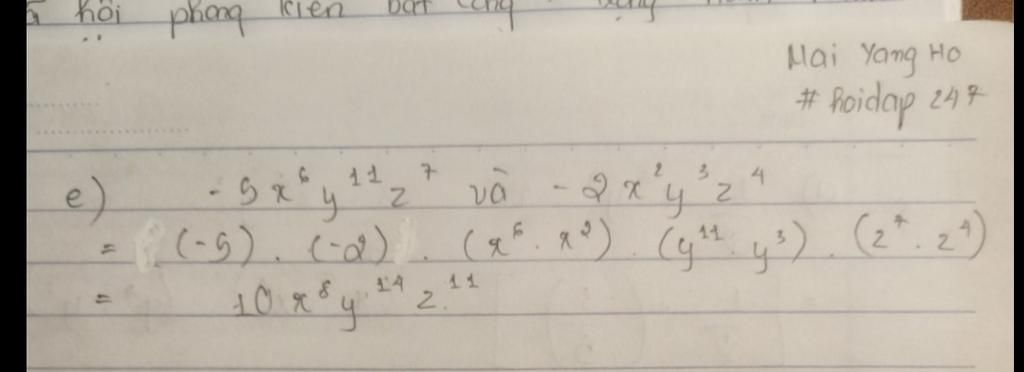 hôi phong kiên bất
Mai Yang Ho
# hoidap 247
e) -5x⁶y¹¹z⁷ và -2x²y³z⁴
= (-5) . (-2) . (x⁶ . x²) . (y¹¹ . y³) . (z⁷ . z⁴)
= 10x⁸y¹⁴z¹¹